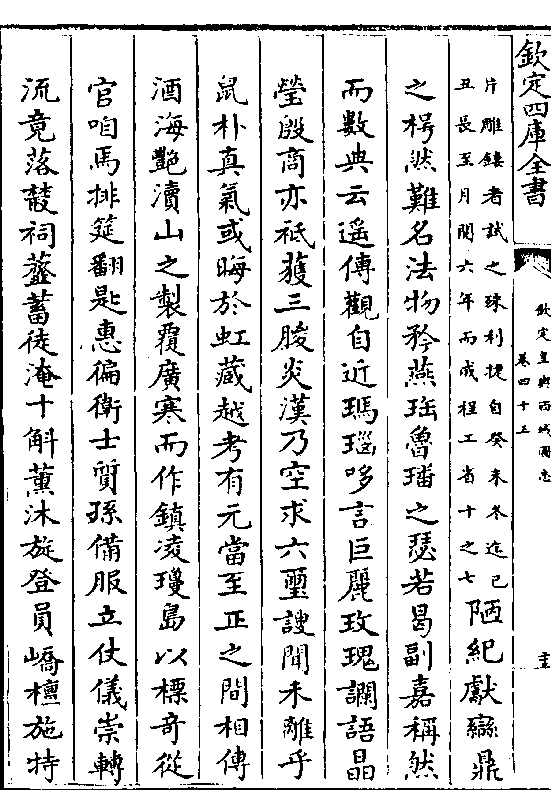 欽定四庫全書
欽定皇輿西域圖志
卷四十五
片雕鏤者試之殊利捷自癸未冬迄己
丑長至月閱六年而成程工省十之七
陋紀甗䜌鼎
之楞然難名法物矜燕珤魯璠之瑟若曷副嘉稱然
而數典云遥傳觀自近瑪瑙哆言巨麗玫瑰讕語晶
瑩殷商亦祗獲三朡炎漢乃空求六璽謏聞未離乎
鼠朴真氣或晦於虹藏越考有元當至正之間相傳
酒海豔瀆山之製覆廣寒而作鎮凌瓊島以標奇從
官咱馬排筵翻匙惠徧衛士質孫備服立仗儀崇轉
流竟落鼓祠虀蓄徒淹十斛薰沐旋登員嶠檀施特